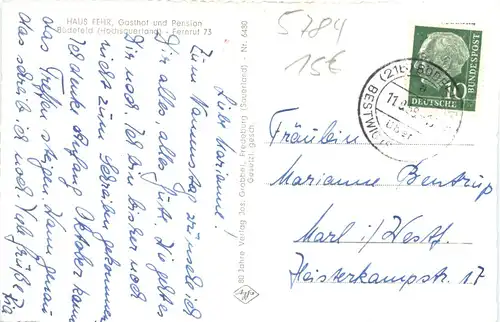 HAUS FEHR, Gasthof und Pension
Bödefeld (Hochsauerland) - Fernruf 73
5784
15€
Liebe Marianne!
Zum Namenstag wünsche ich
Dir alles, alles Gute. Wie geht es
Dir noch? Ich bin bisher noch
nicht zum Schreiben gekommen.
Ich denke Anfang Oktober kann
das Treffen steigen. Wann genau
das schreib ich noch. Viele Grüße
80 Jahre Verlag Jos. Grobbel, Fredeburg (Sauerland) - Nr. 6430
Gesetzl. gesch.
10
DEUTSCHE
BUNDESPOST
(21b)
BESTWIG
Fräulein
Marianne Bentrup
Marl i/Westf.
Heisterkampstr. 17